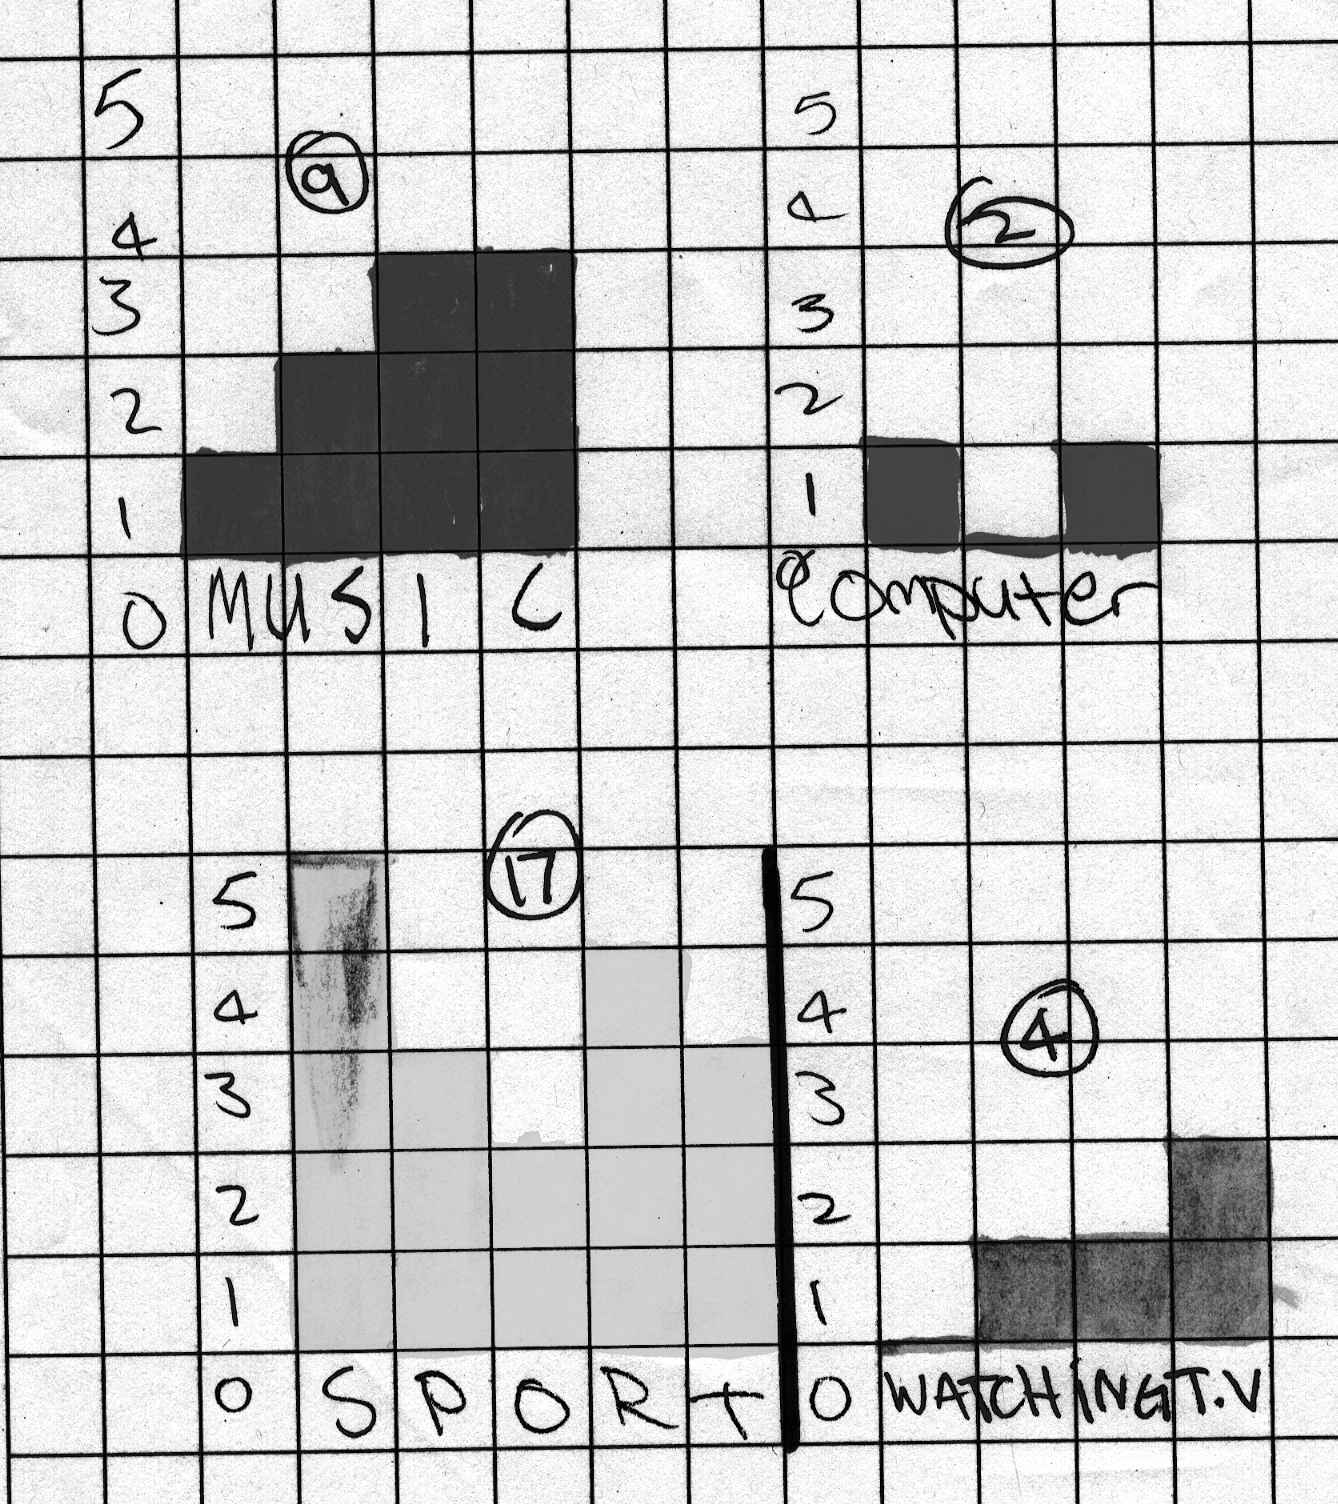 5
9
4
3
2
1
0 MUSIC
5
4
2
3
2
1
0 Computer
17
5
4
3
2
1
0 SPORT
5
4
4
3
2
1
0 WATCHING T.V